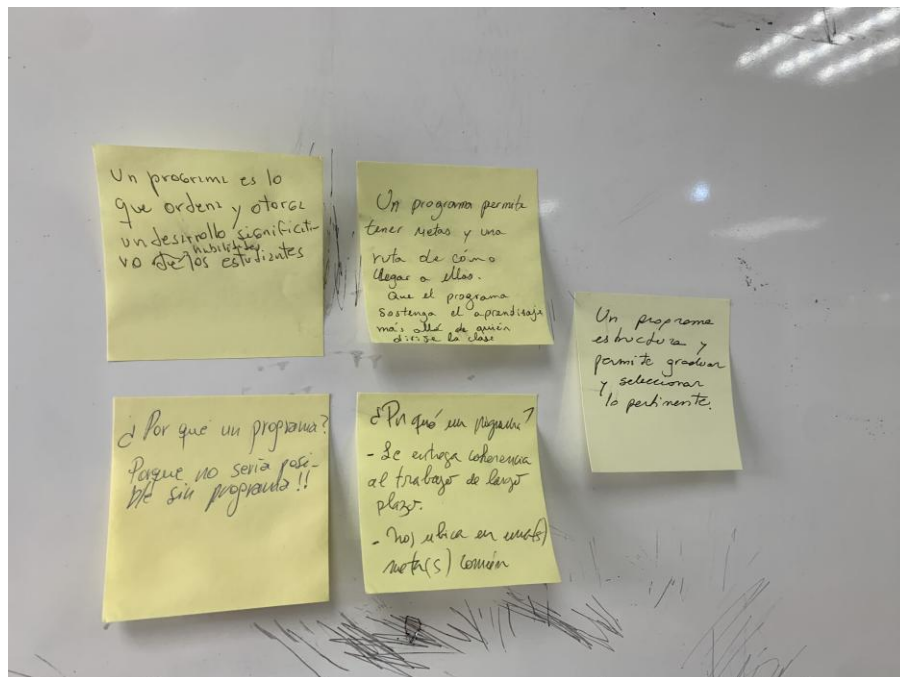 Un programa es lo
que ordena y otorga
un desarrollo significati-
vo de habilidades los estudiantes
Un programa permite
tener metas y una
ruta de cómo
llegar a ellas.
Que el programa
sostenga el aprendizaje
más allá de quién
dirije la clase
Un programa
estructura y
permite graduar
y seleccionar
lo pertinente.
¿Por que un programa?
Porque no sería posi-
ble sin programa!!
¿Por qué un programa?
- Le entrega coherencia
al trabajo de largo
plazo.
- Nos ubica en una(s)
meta(s) común